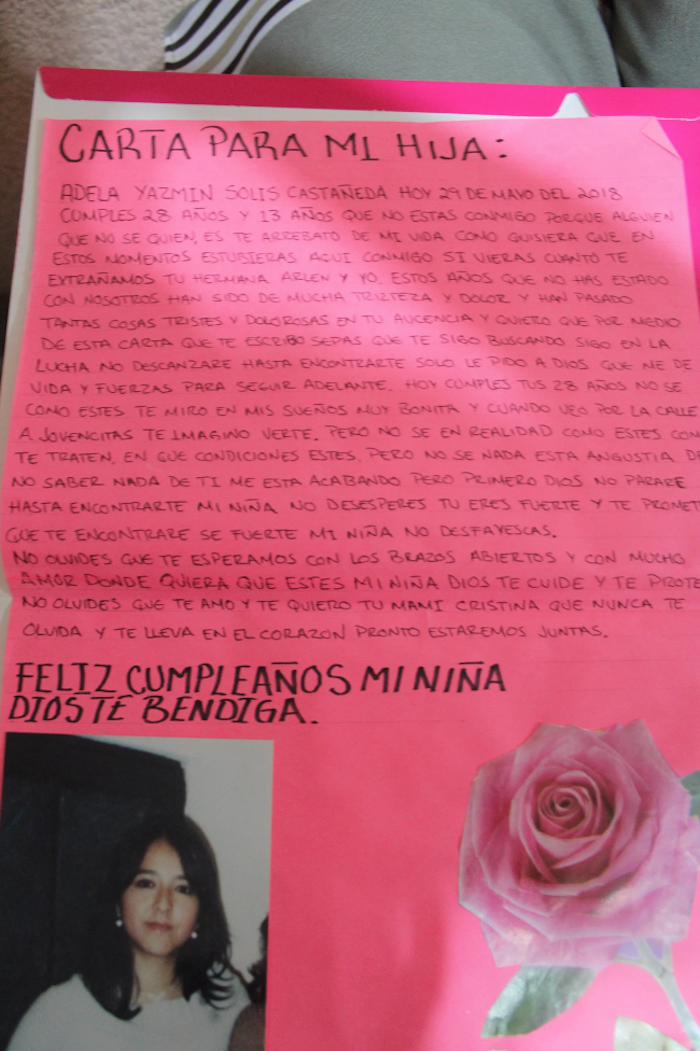 CARTA PARA MI HIJA:
ADELA YAZMIN SOLIS CASTAÑEDA HOY 29 DE MAYO DEL 2018
CUMPLES 28 AÑOS Y 13 AÑOS QUE NO ESTAS CONMIGO PORQUE ALGUIEN
QUE NO SE QUIEN, ES TE ARREBATO DE MI VIDA COMO QUISIERA QUE EN
ESTOS MOMENTOS ESTUBIERAS AQUI CONMIGO SI VIERAS CUANTO TE
EXTRAÑAMOS TU HERMANA ARLEN Y YO. ESTOS AÑOS QUE NO HAS ESTADO
CON NOSOTROS HAN SIDO DE MUCHA TRIZTEZA Y DOLOR Y HAN PASADO
TANTAS COSAS TRISTES Y DOLOROSAS EN TU AUCENCIA Y QUIERO QUE POR MEDIO
DE ESTA CARTA QUE TE ESCRIBO SEPAS QUE TE SIGO BUSCANDO SIGO EN LA
LUCHA NO DESCANZARE HASTA ENCONTRARTE SOLO LE PIDO A DIOS QUE ME DE
VIDA Y FUERZAS PARA SEGUIR ADELANTE. HOY CUMPLES TUS 28 AÑOS NO SE
COMO ESTES TE MIRO EN MIS SUEÑOS MUY BONITA Y CUANDO VEO POR LA CALLE
A JOVENCITAS TE IMAGINO VERTE. PERO NO SE EN REALIDAD COMO ESTES COM
TE TRATEN, EN QUE CONDICIONES ESTES. PERO NO SE NADA ESTA ANGUSTIA DE
NO SABER NADA DE TI ME ESTA ACABANDO PERO PRIMERO DIOS NO PARARE
HASTA ENCONTRARTE MI NIÑA NO DESESPERES TU ERES FUERTE Y TE PROMET
QUE TE ENCONTRARE SE FUERTE MI NIÑA NO DESFAYESCAS.
NO OLVIDES QUE TE ESPERAMOS CON LOS BRAZOS ABIERTOS Y CON MUCHO
AMOR DONDE QUIERA QUE ESTES MI NIÑA DIOS TE CUIDE Y TE PROTE
NO OLVIDES QUE TE AMO Y TE QUIERO TU MAMI CRISTINA QUE NUNCA TE
OLVIDA Y TE LLEVA EN EL CORAZON PRONTO ESTAREMOS JUNTAS.
FELIZ CUMPLEAÑOS MI NIÑA
DIOS TE BENDIGA.